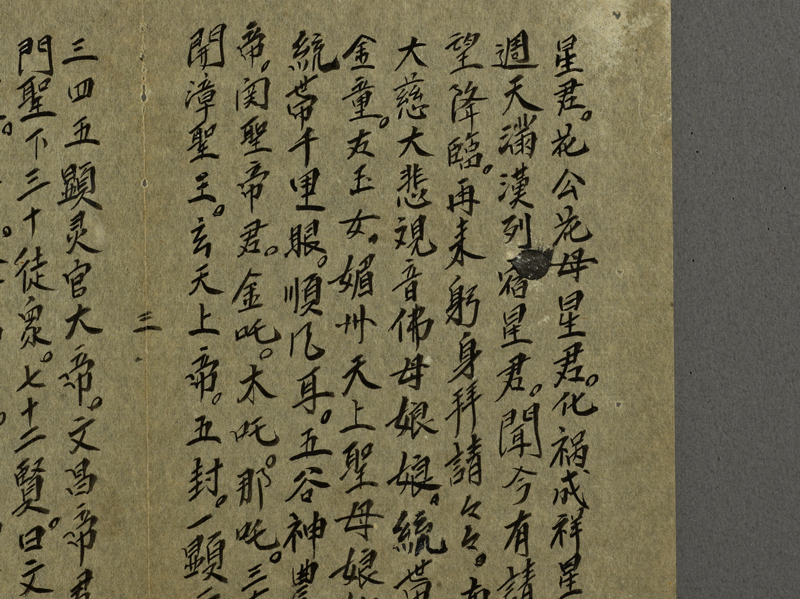 星君。花公花母星君。化禍成祥星
週天滿漢列宿星君。聞今有請
望降臨。再来躬身拜請々々。
大慈大悲視音佛母娘娘。統帶
金童。友玉女。媚卅天上聖母娘
統帶千里眼。順凡耳。五谷神農
帝。関聖帝君。金吒。木吒。那吒。三
開漳聖王。玄天上帝。五封。一顯
三
三四五顕灵官大帝。文昌帝君
門聖下三十徒衆。七十二賢。曰文